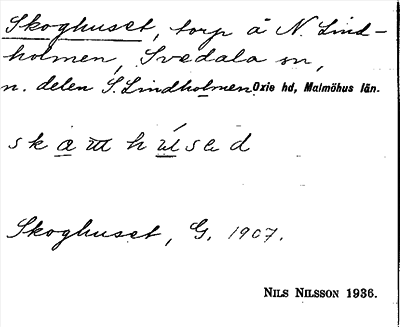 Skoghuset, torp å N. Lind-
holmen, Svedala sn,
n. delen S. Lindholmen. Oxie hd, Malmöhus län.
Skoghuset, G. 1907.
NILS NILSSON 1936.